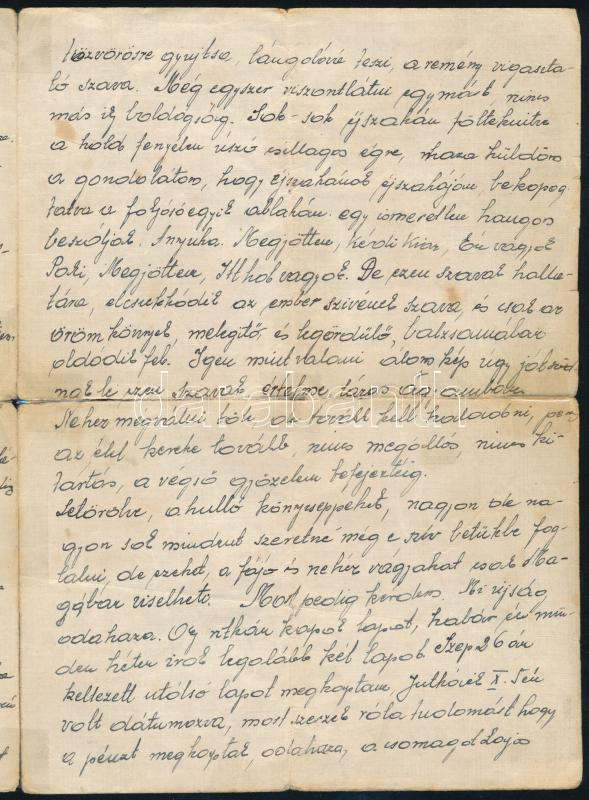 tűzvörösre gyujtsa, lángolóvá teszi, a remény vigaszta-
ló szava. Még egyszer viszontlátni egymást nincs
más ily boldogság. Sok-sok éjszakán föltekintve
a hold fényében úszó csillagos égre, haza küldöm
a gondolatom, hogy éjszakának éjszakáján, bekopog
tatva a folyósóegyik ablakán. egy ismeretlen hangos
beszólják. Anyuka. Megjöttem, kérdi Kisz, Én vagyok
Pali, Megjöttem, Itthol vagyok. De ezen szavak halla-
tára, elcsukkódik az ember szivének szava, és csak az
öröm könnyek, melegitő, és legördülő, balzsamában
oldódik fel. Igen mint valami álom kép ugy játszód
nak le ezen szavak, értelme, lázas agyamban
Nehéz megválni tőle, de tovább kell haladni,
az élet kereke tovább, nincs megállás, nincs ki-
tartás, a végső győzelem befejeztéig.
Letörölve, a hulló könnycseppeket, nagyon de na-
gyon sok mindent szeretné még e sziv betükbe fog-
lalni, de ezeket, a fájó és nehéz vágyakat csak Ma-
gában viselheti. Most pedig kérdem. Mi ujság
odahaza. Oly ritkán kapok lapot, habár én min-
den héten irok legalább két lapot. Szep 26 án
keltezett utolsó lapot megkaptam, Julkáék X. 5én
volt dátumozva, most szerzek róla tudomást hogy
a pénzt megkapták, odahaza, a csomagd
darabanth